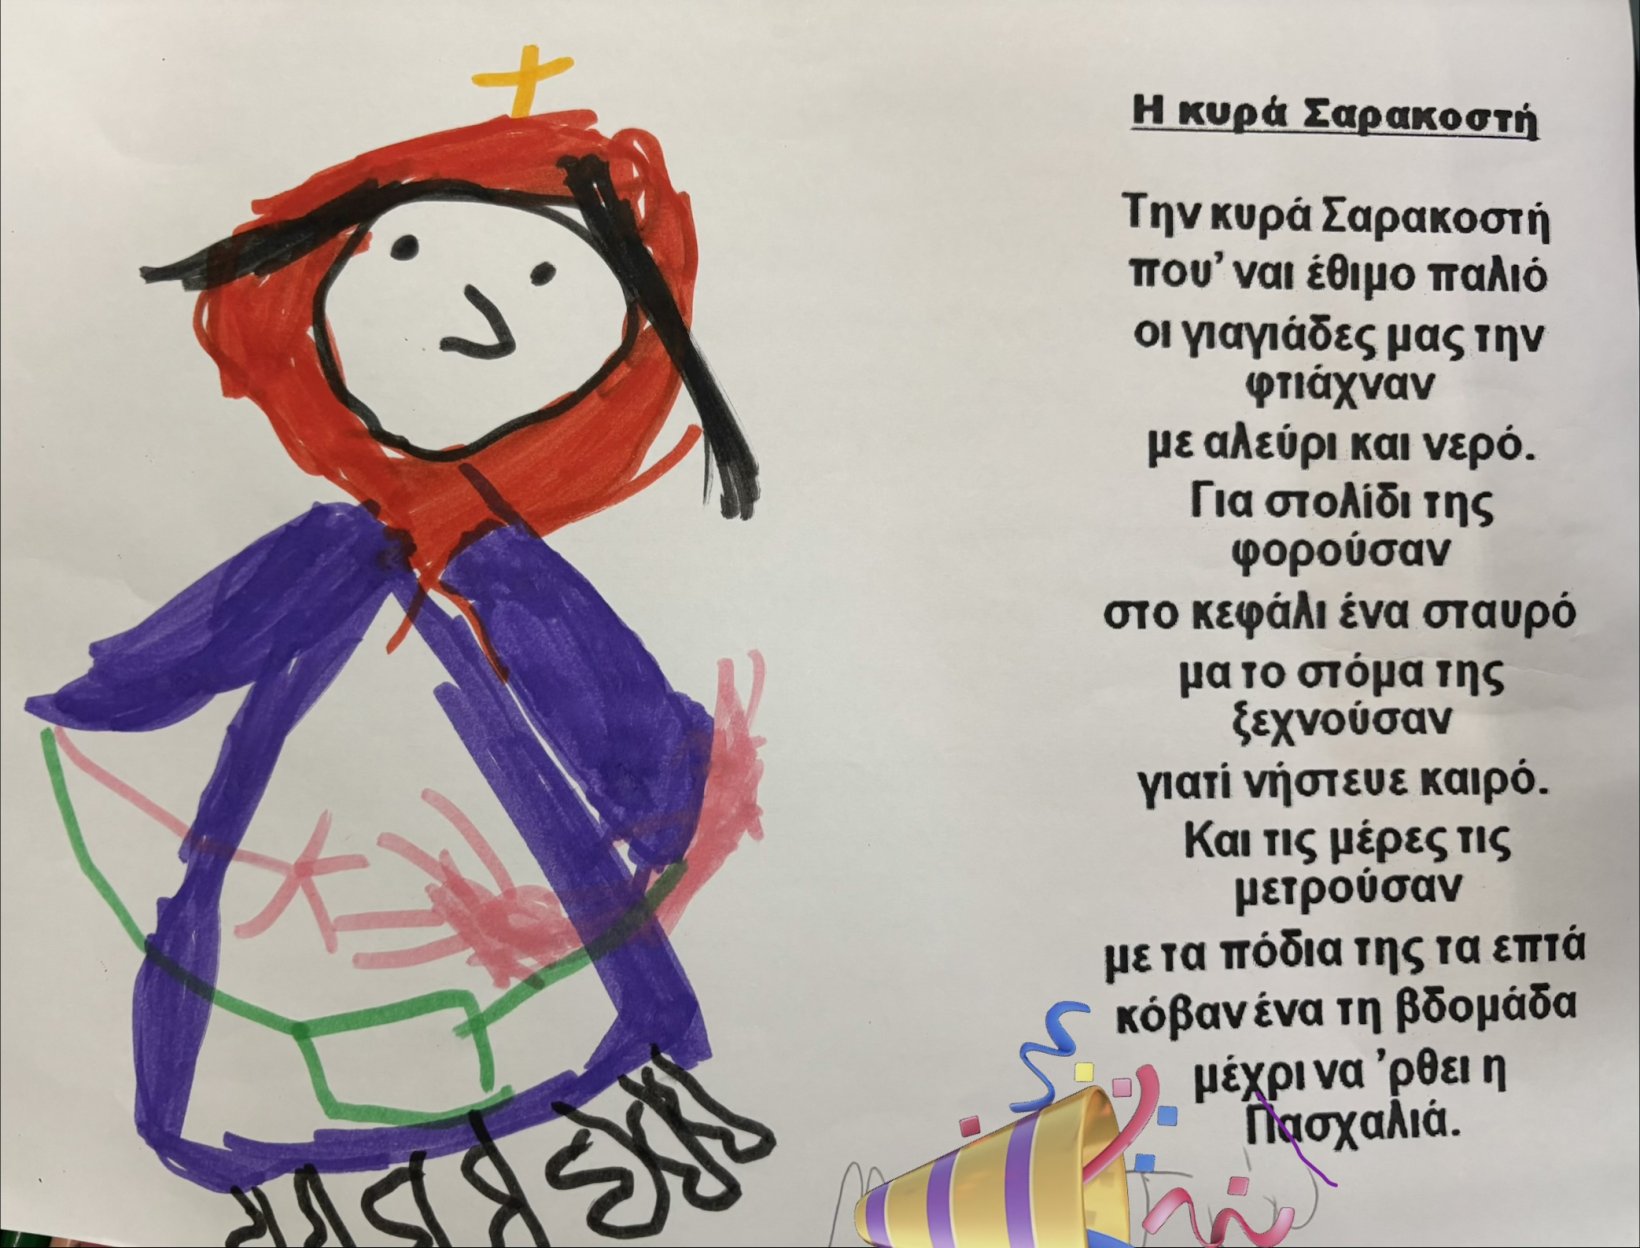 Η κυρά Σαρακοστή
Την κυρά Σαρακοστή
που' ναι έθιμο παλιό
οι γιαγιάδες μας την
φτιάχναν
με αλεύρι και νερό.
Για στολίδι της
φορούσαν
στο κεφάλι ένα σταυρό
μα το στόμα της
ξεχνούσαν
γιατί νήστευε καιρό.
Και τις μέρες τις
μετρούσαν
με τα πόδια της τα επτά
κόβαν ένα τη βδομάδα
μέχρι να 'ρθει η
Πασχαλιά.